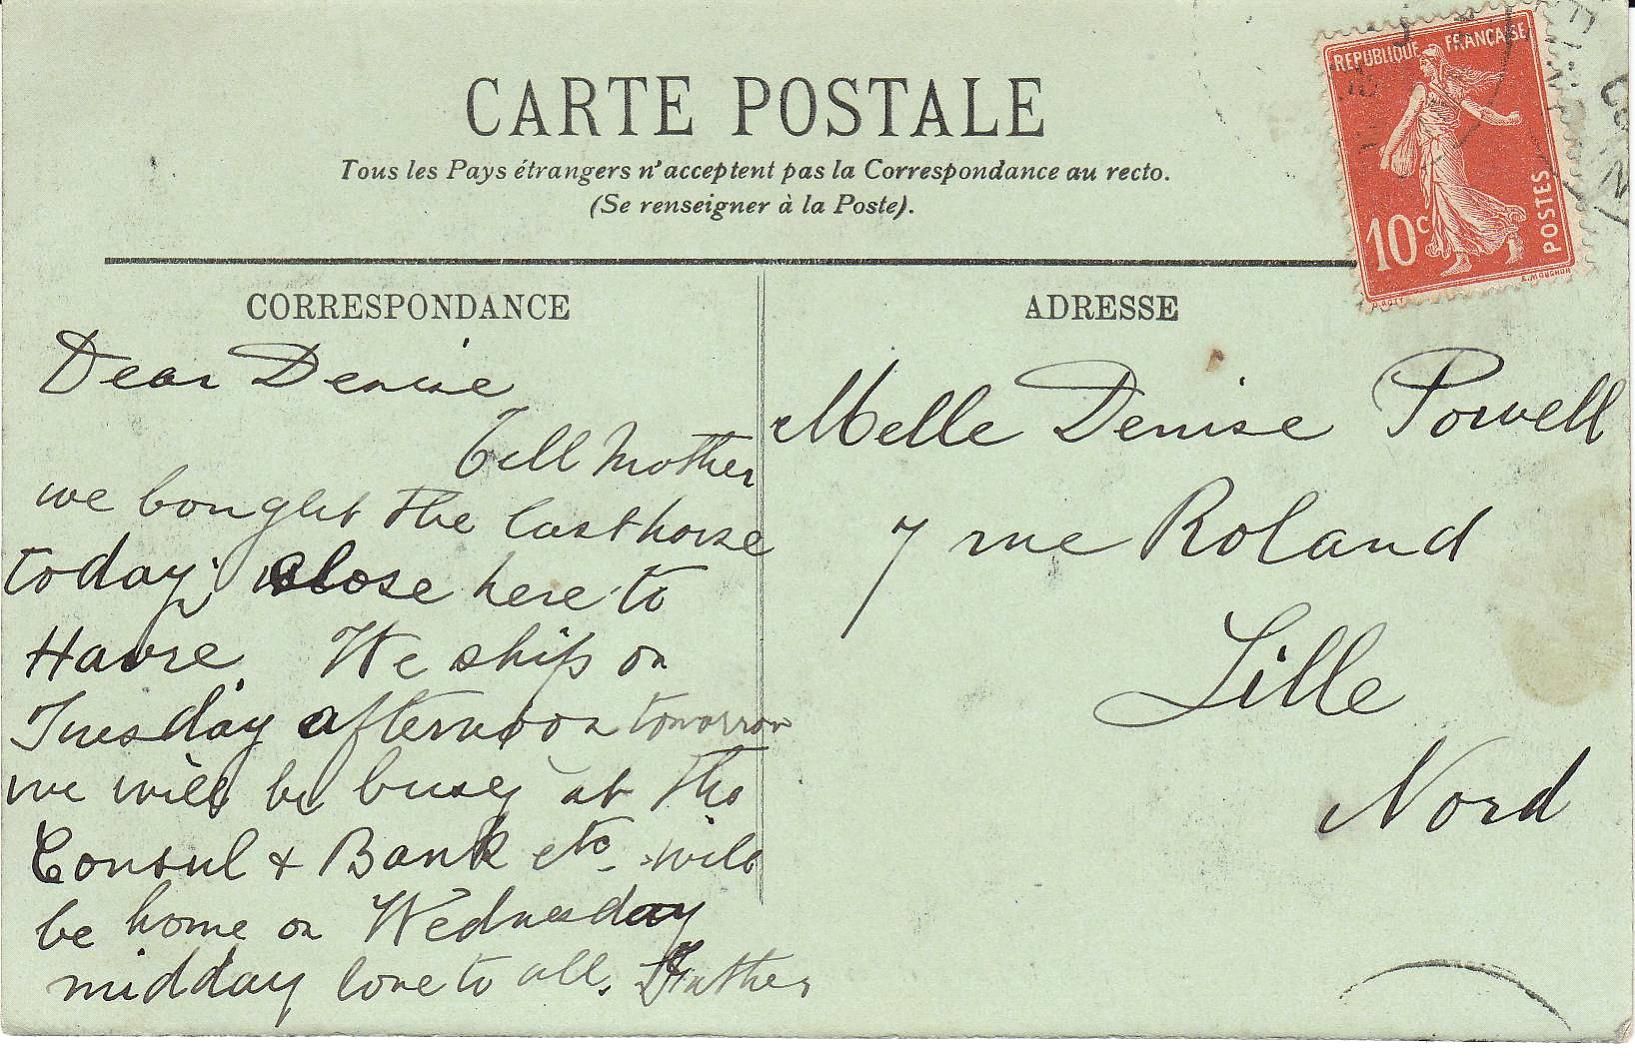 CARTE POSTALE
Tous les Pays étrangers n'acceptent pas la Correspondance au recto.
(Se renseigner à la Poste).
REPUBLIQUE FRANÇAISE
10c
POSTES
CORRESPONDANCE
Dear Denise
Tell Mother
we bought the last horse
today; close here to
Havre. We ship on
Tuesday afternoon tomorrow
we will be busy at the
Consul & Bank etc. will
be home on Wednesday
midday love to all. Father
ADRESSE
Melle Denise Powell
7 rue Roland
Lille
Nord